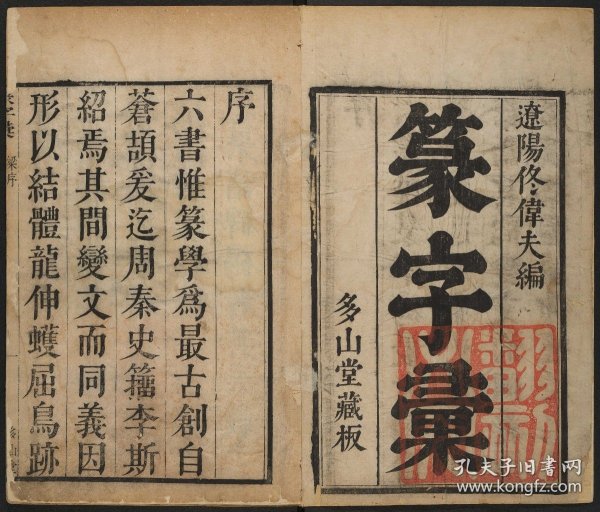 遼陽佟偉夫編
篆字彙
多山堂藏板
序
六書惟篆學爲最古創自
蒼頡爰迄周秦史籀李斯
紹焉其間變文而同義因
形以結體龍伸蠖屈鳥跡
梁序
孔夫子旧书网
www.kongfz.com